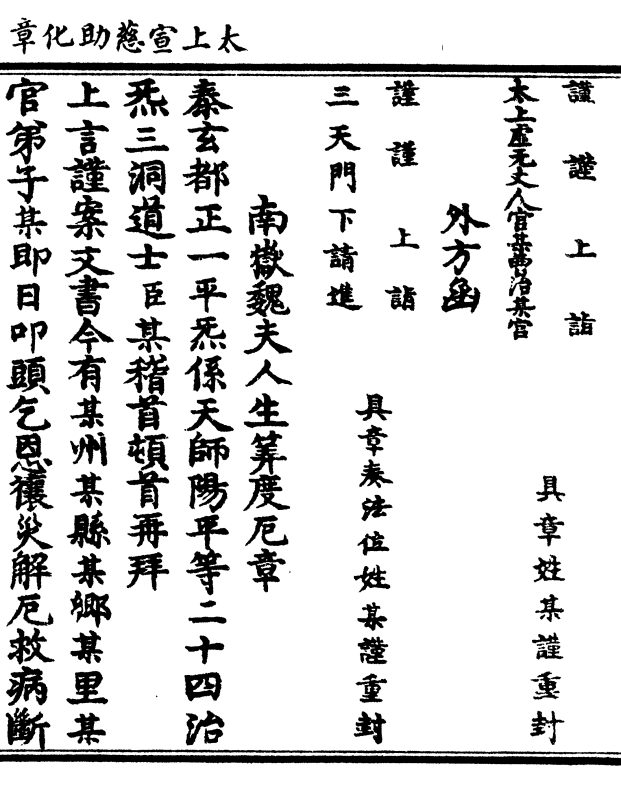 太上宣慈助化章
謹謹上詣
具章姓某謹重封
太上虛无丈人官某曹治某官
外方函
謹謹上詣
具章奏法位姓某謹重封
三天門下請進
南嶽魏夫人生筭度厄章
泰玄都正一平炁係天師陽平等二十四治
炁三洞道士臣某稽首頓首再拜
上言謹案文書今有某州某縣某鄉某里某
官弟子某即日叩頭乞恩禳災解厄救病斷